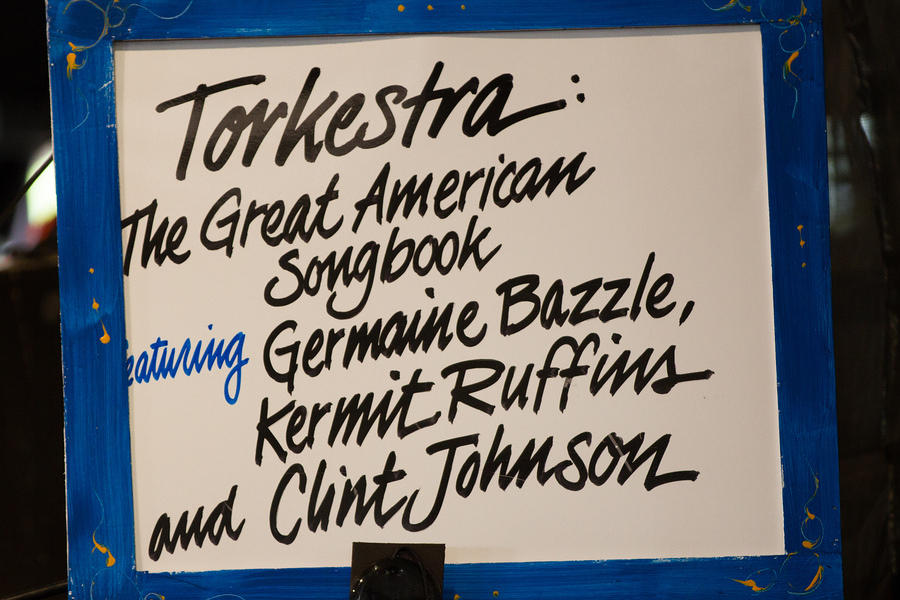 Torkestra:
The Great American
Songbook
eaturing Germaine Bazzle,
Kermit Ruffins
and Clint Johnson